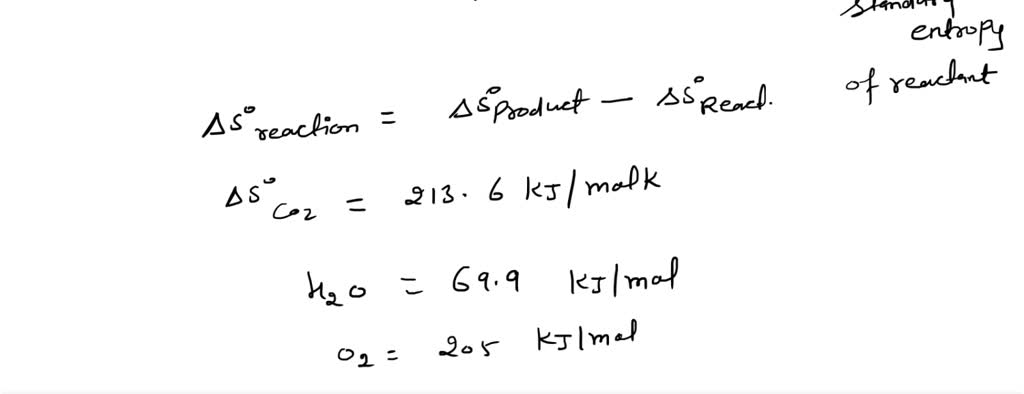 standard
entropy
of reactant
ΔS°reaction = ΔS°Product – ΔS°React.
ΔS°CO2 = 213.6 kJ/molk
H2O = 69.9 kJ/mol
O2 = 205 kJ/mol